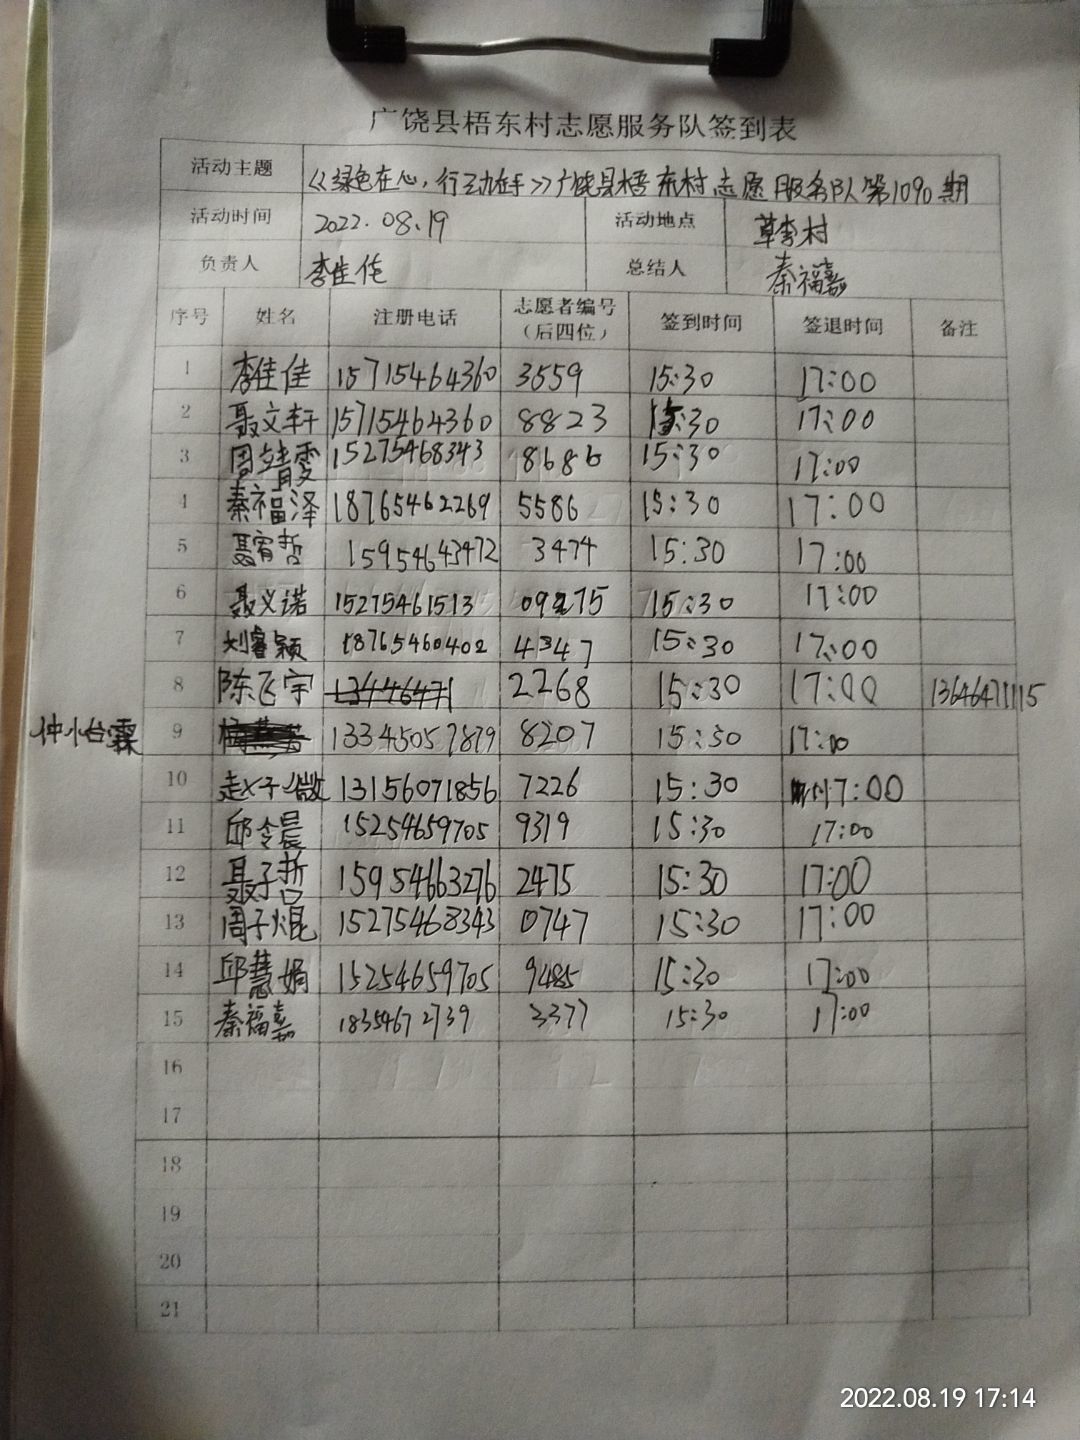 广饶县梧东村志愿服务队签到表
活动主题 《绿色在心,行动在手》广饶县梧东村志愿服务队第1090期
活动时间 2022.08.19 活动地点 草李村
负责人 李佳佳 总结人 秦福嘉
序号 姓名 注册电话 志愿者编号(后四位) 签到时间 签退时间 备注
1 李佳佳 15715464360 3559 15:30 17:00
2 聂文轩 15715464360 8823 15:30 17:00
3 周靖雯 15275468343 8686 15:30 17:00
4 秦福泽 18765462269 5586 15:30 17:00
5 聂宥哲 15954643472 3474 15:30 17:00
6 聂义诺 15275461513 15:30 17:00
7 刘睿颖 18765460402 4347 15:30 17:00
8 陈飞宇 2268 15:30 17:00 13646471115
仲小怡霖 9 13345057879 8207 15:50 17:00
10 赵子微 13156071856 7226 15:30 17:00
11 邱令晨 15254659705 9319 15:30 17:00
12 聂子哲 15954663276 2475 15:30 17:00
13 周子焜 15275468343 0747 15:30 17:00
14 邱慧娟 15254659705 9485 15:30 17:00
15 秦福嘉 18354672739 3377 15:30 17:00
16
17
18
19
20
21
2022.08.19 17:14